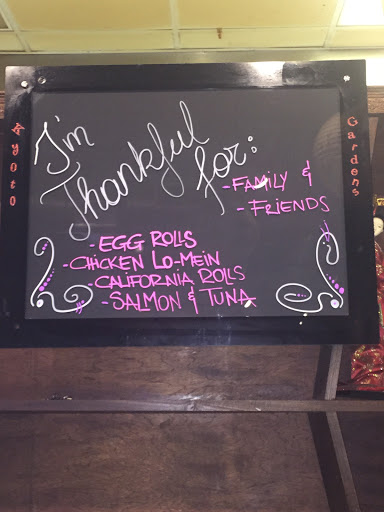 Kyoto
Gardens
I'm
Thankful
for:
- FAMILY &
- FRIENDS
- EGG ROLLS
- CHICKEN LO-MEIN
- CALIFORNIA ROLLS
- SALMON & TUNA